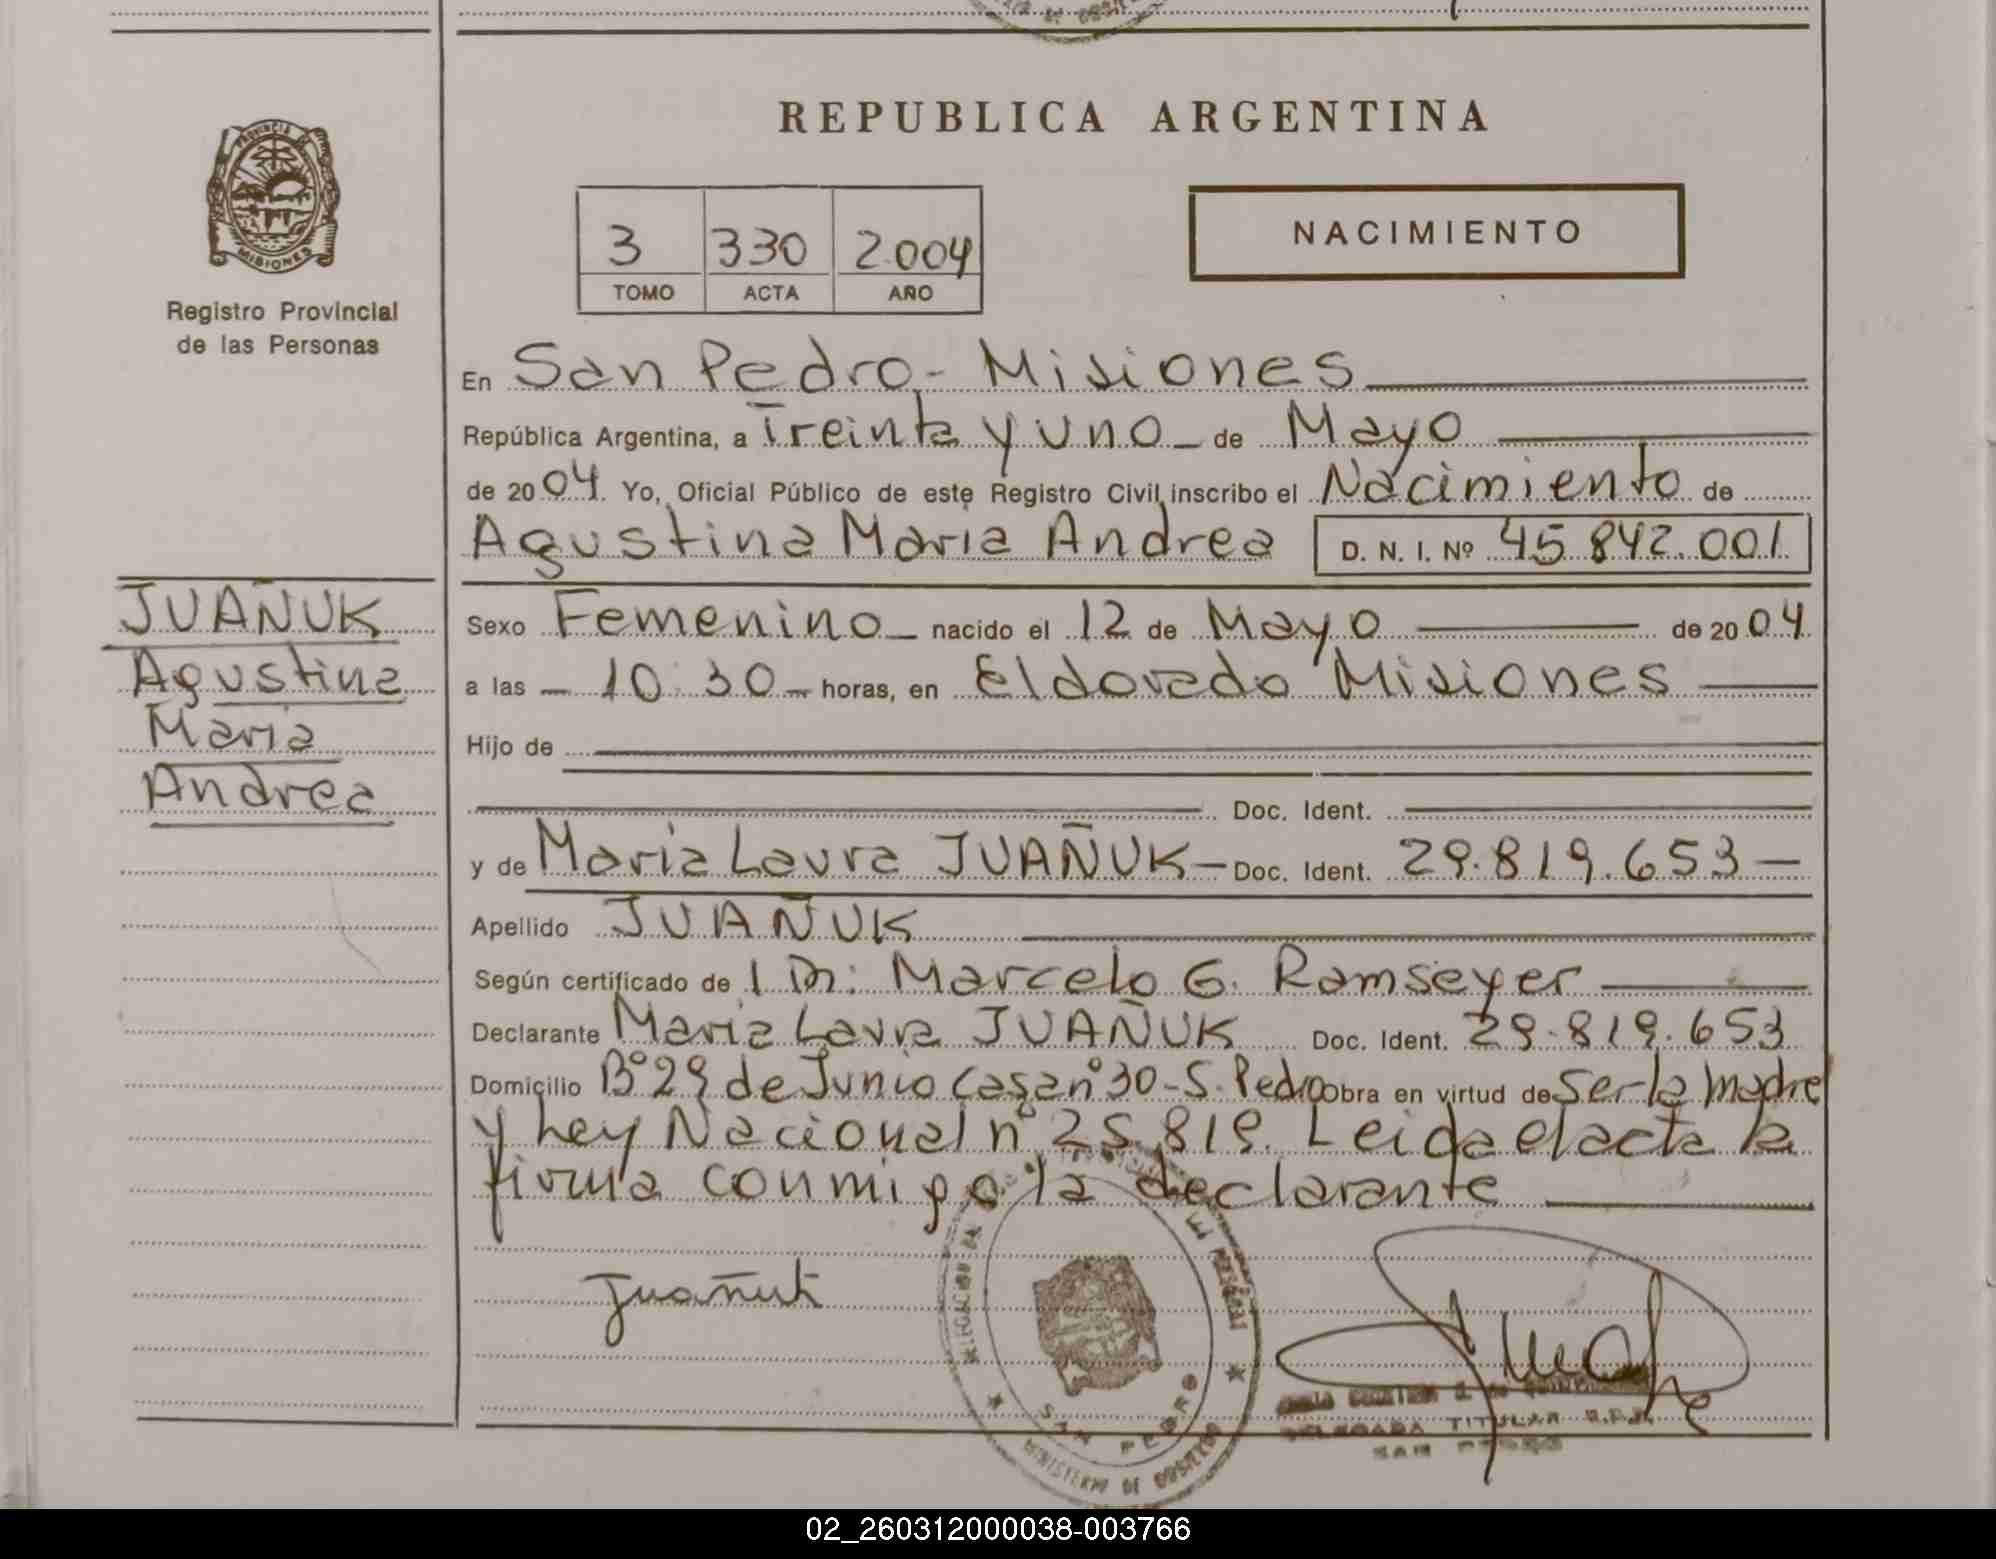 REPUBLICA ARGENTINA
PROVINCIA
MISIONES
Registro Provincial
de las Personas
3 330 2.004
TOMO ACTA AÑO
NACIMIENTO
En San Pedro - Misiones
República Argentina, a Treinta y uno de Mayo
de 20 04. Yo, Oficial Público de este Registro Civil, inscribo el Nacimiento de
Agustina Maria Andrea D. N. I. Nº 45.842.001
JUAÑUK
Agustina
Maria
Andrea
Sexo Femenino nacido el 12 de Mayo de 20 04
a las 10:30 horas, en Eldorado Misiones
Hijo de
Doc. Ident.
y de Maria Laura JUAÑUK Doc. Ident. 29.819.653
Apellido JUAÑUK
Según certificado de l Dr: Marcelo G. Ramseyer
Declarante Maria Laura JUAÑUK Doc. Ident. 29.819.653
Domicilio Bº 29 de Junio Casa nº 30 - S. Pedro Obra en virtud de Ser la madre
y Ley Nacional nº 25.819. Leida el acta la
firma conmigo la declarante
Juañuk
SAN PEDRO
MINISTERIO DE GOBIERNO
DELEGADA TITULAR R.P.P.
SAN PEDRO
02_260312000038-003766